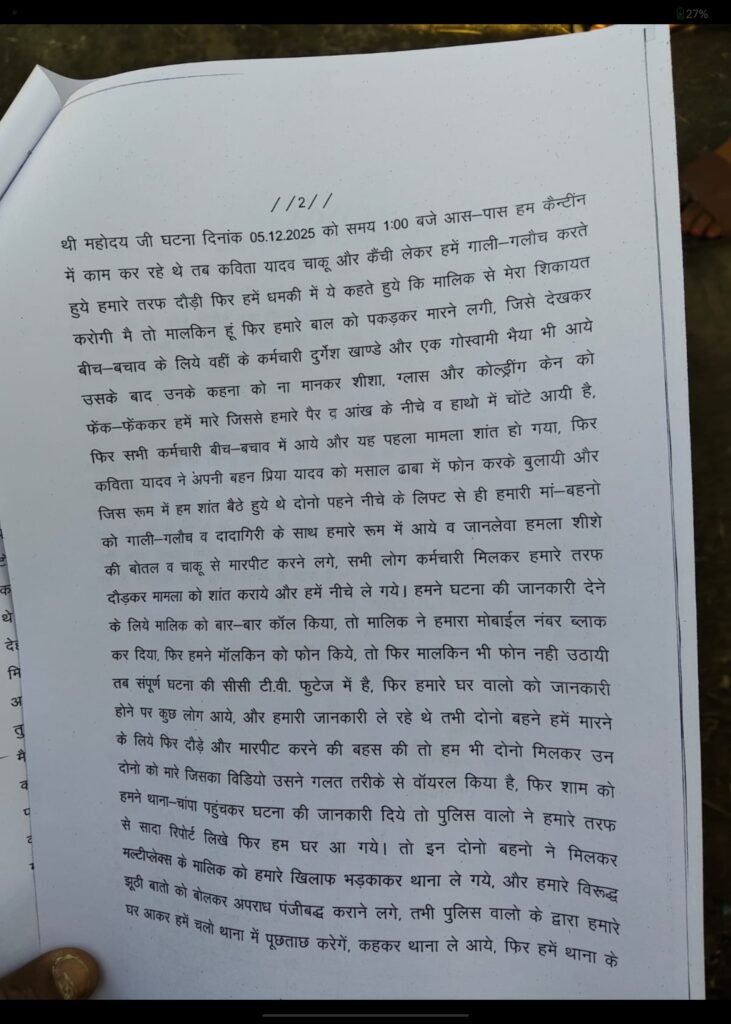 27%
//2//
थी महोदय जी घटना दिनांक 05.12.2025 को समय 1:00 बजे आस–पास हम कैन्टींन
में काम कर रहे थे तब कविता यादव चाकू और कैंची लेकर हमें गाली–गलौच करते
हुये हमारे तरफ दौड़ी फिर हमें धमकी में ये कहते हुये कि मालिक से मेरा शिकायत
करोगी मै तो मालकिन हूं फिर हमारे बाल को पकड़कर मारने लगी, जिसे देखकर
बीच–बचाव के लिये वहीं के कर्मचारी दुर्गेश खाण्डे और एक गोस्वामी भैया भी आये
उसके बाद उनके कहना को ना मानकर शीशा, ग्लास और कोल्ड्रींग केन को
फेंक–फेंककर हमें मारे जिससे हमारे पैर व आंख के नीचे व हाथो में चोंटे आयी है,
फिर सभी कर्मचारी बीच–बचाव में आये और यह पहला मामला शांत हो गया, फिर
कविता यादव ने अपनी बहन प्रिया यादव को मसाल ढाबा में फोन करके बुलायी और
जिस रूम में हम शांत बैठे हुये थे दोनो पहने नीचे के लिफ्ट से ही हमारी मां–बहनो
को गाली–गलौच व दादागिरी के साथ हमारे रूम में आये व जानलेवा हमला शीशे
की बोतल व चाकू से मारपीट करने लगे, सभी लोग कर्मचारी मिलकर हमारे तरफ
दौड़कर मामला को शांत कराये और हमें नीचे ले गये। हमने घटना की जानकारी देने
के लिये मालिक को बार–बार कॉल किया, तो मालिक ने हमारा मोबाईल नंबर ब्लाक
कर दिया, फिर हमने मॉलकिन को फोन किये, तो फिर मालकिन भी फोन नही उठायी
तब संपूर्ण घटना की सीसी टी.वी. फुटेज में है, फिर हमारे घर वालो को जानकारी
होने पर कुछ लोग आये, और हमारी जानकारी ले रहे थे तभी दोनो बहने हमें मारने
के लिये फिर दौड़े और मारपीट करने की बहस की तो हम भी दोनो मिलकर उन
दोनो को मारे जिसका विडियो उसने गलत तरीके से वॉयरल किया है, फिर शाम को
हमने थाना–चांपा पहुंचकर घटना की जानकारी दिये तो पुलिस वालो ने हमारे तरफ
से सादा रिपोर्ट लिखे फिर हम घर आ गये। तो इन दोनो बहनो ने मिलकर
मल्टीप्लेक्स के मालिक को हमारे खिलाफ भड़काकर थाना ले गये, और हमारे विरूद्ध
झूठी बातो को बोलकर अपराध पंजीबद्ध कराने लगे, तभी पुलिस वालो के द्वारा हमारे
घर आकर हमें चलो थाना में पूछताछ करेगें, कहकर थाना ले आये, फिर हमें थाना के